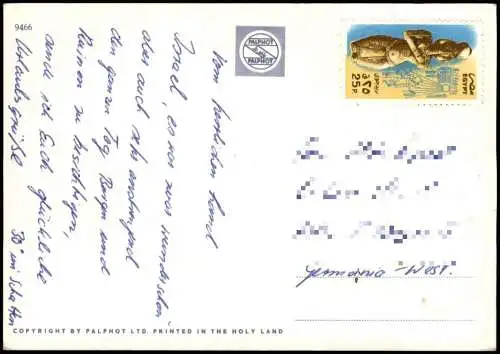 9466
PALPHOT
PALPHOT
EGYPT
25 P.
Vom herrlichen Land
Israel, es war zwar wunderschön
aber auch sehr anstrengend
den ganzen Tag Burgen und
Ruinen zu besichtigen,
sende ich Euch glückliche
Urlaubsgrüße
30° im Schatten
Germania - West.
COPYRIGHT BY PALPHOT LTD. PRINTED IN THE HOLY LAND